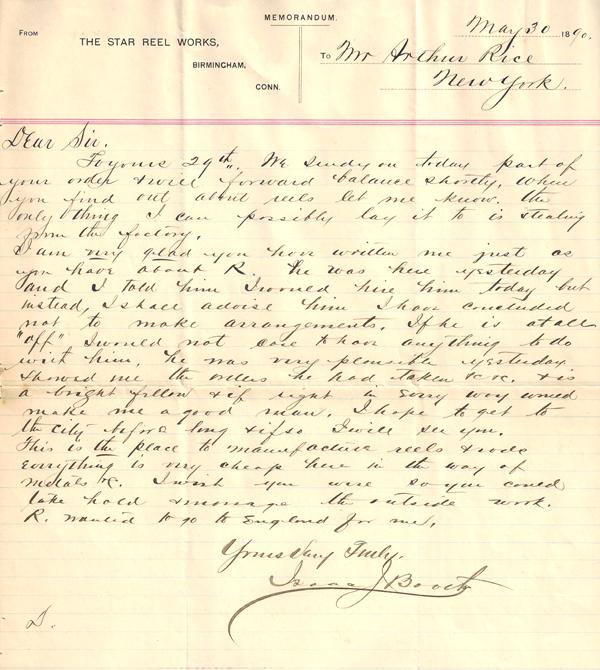 MEMORANDUM.
May 30 1890.
FROM
THE STAR REEL WORKS,
To Mr Arthur Rice
BIRMINGHAM,
New York.
CONN.
Dear Sir.
To yours 29th. We send you today part of
your order & will forward balance shortly, When
you find out about reels let me know. the
only thing I can possibly lay it to is stealing
from the factory.
I am very glad you have written me just as
you have about R. he was here yesterday
and I told him I would hire him today but
instead, I shall advise him I have concluded
not to make arrangements. If he is at all
"off" I would not care to have anything to do
with him, he was very plausible yesterday
showed me the orders he had taken &c. & is
a bright fellow & if right in every way would
make me a good man. I hope to get to
the city before long & if so I will see you.
This is the place to manufacture reels & rods
Everything is very cheap here in the way of
metals &c. I wish you were so you could
take hold & manage the outside work.
R. wanted to go to England for me.
Yours Very Truly.
Isaac J Booth